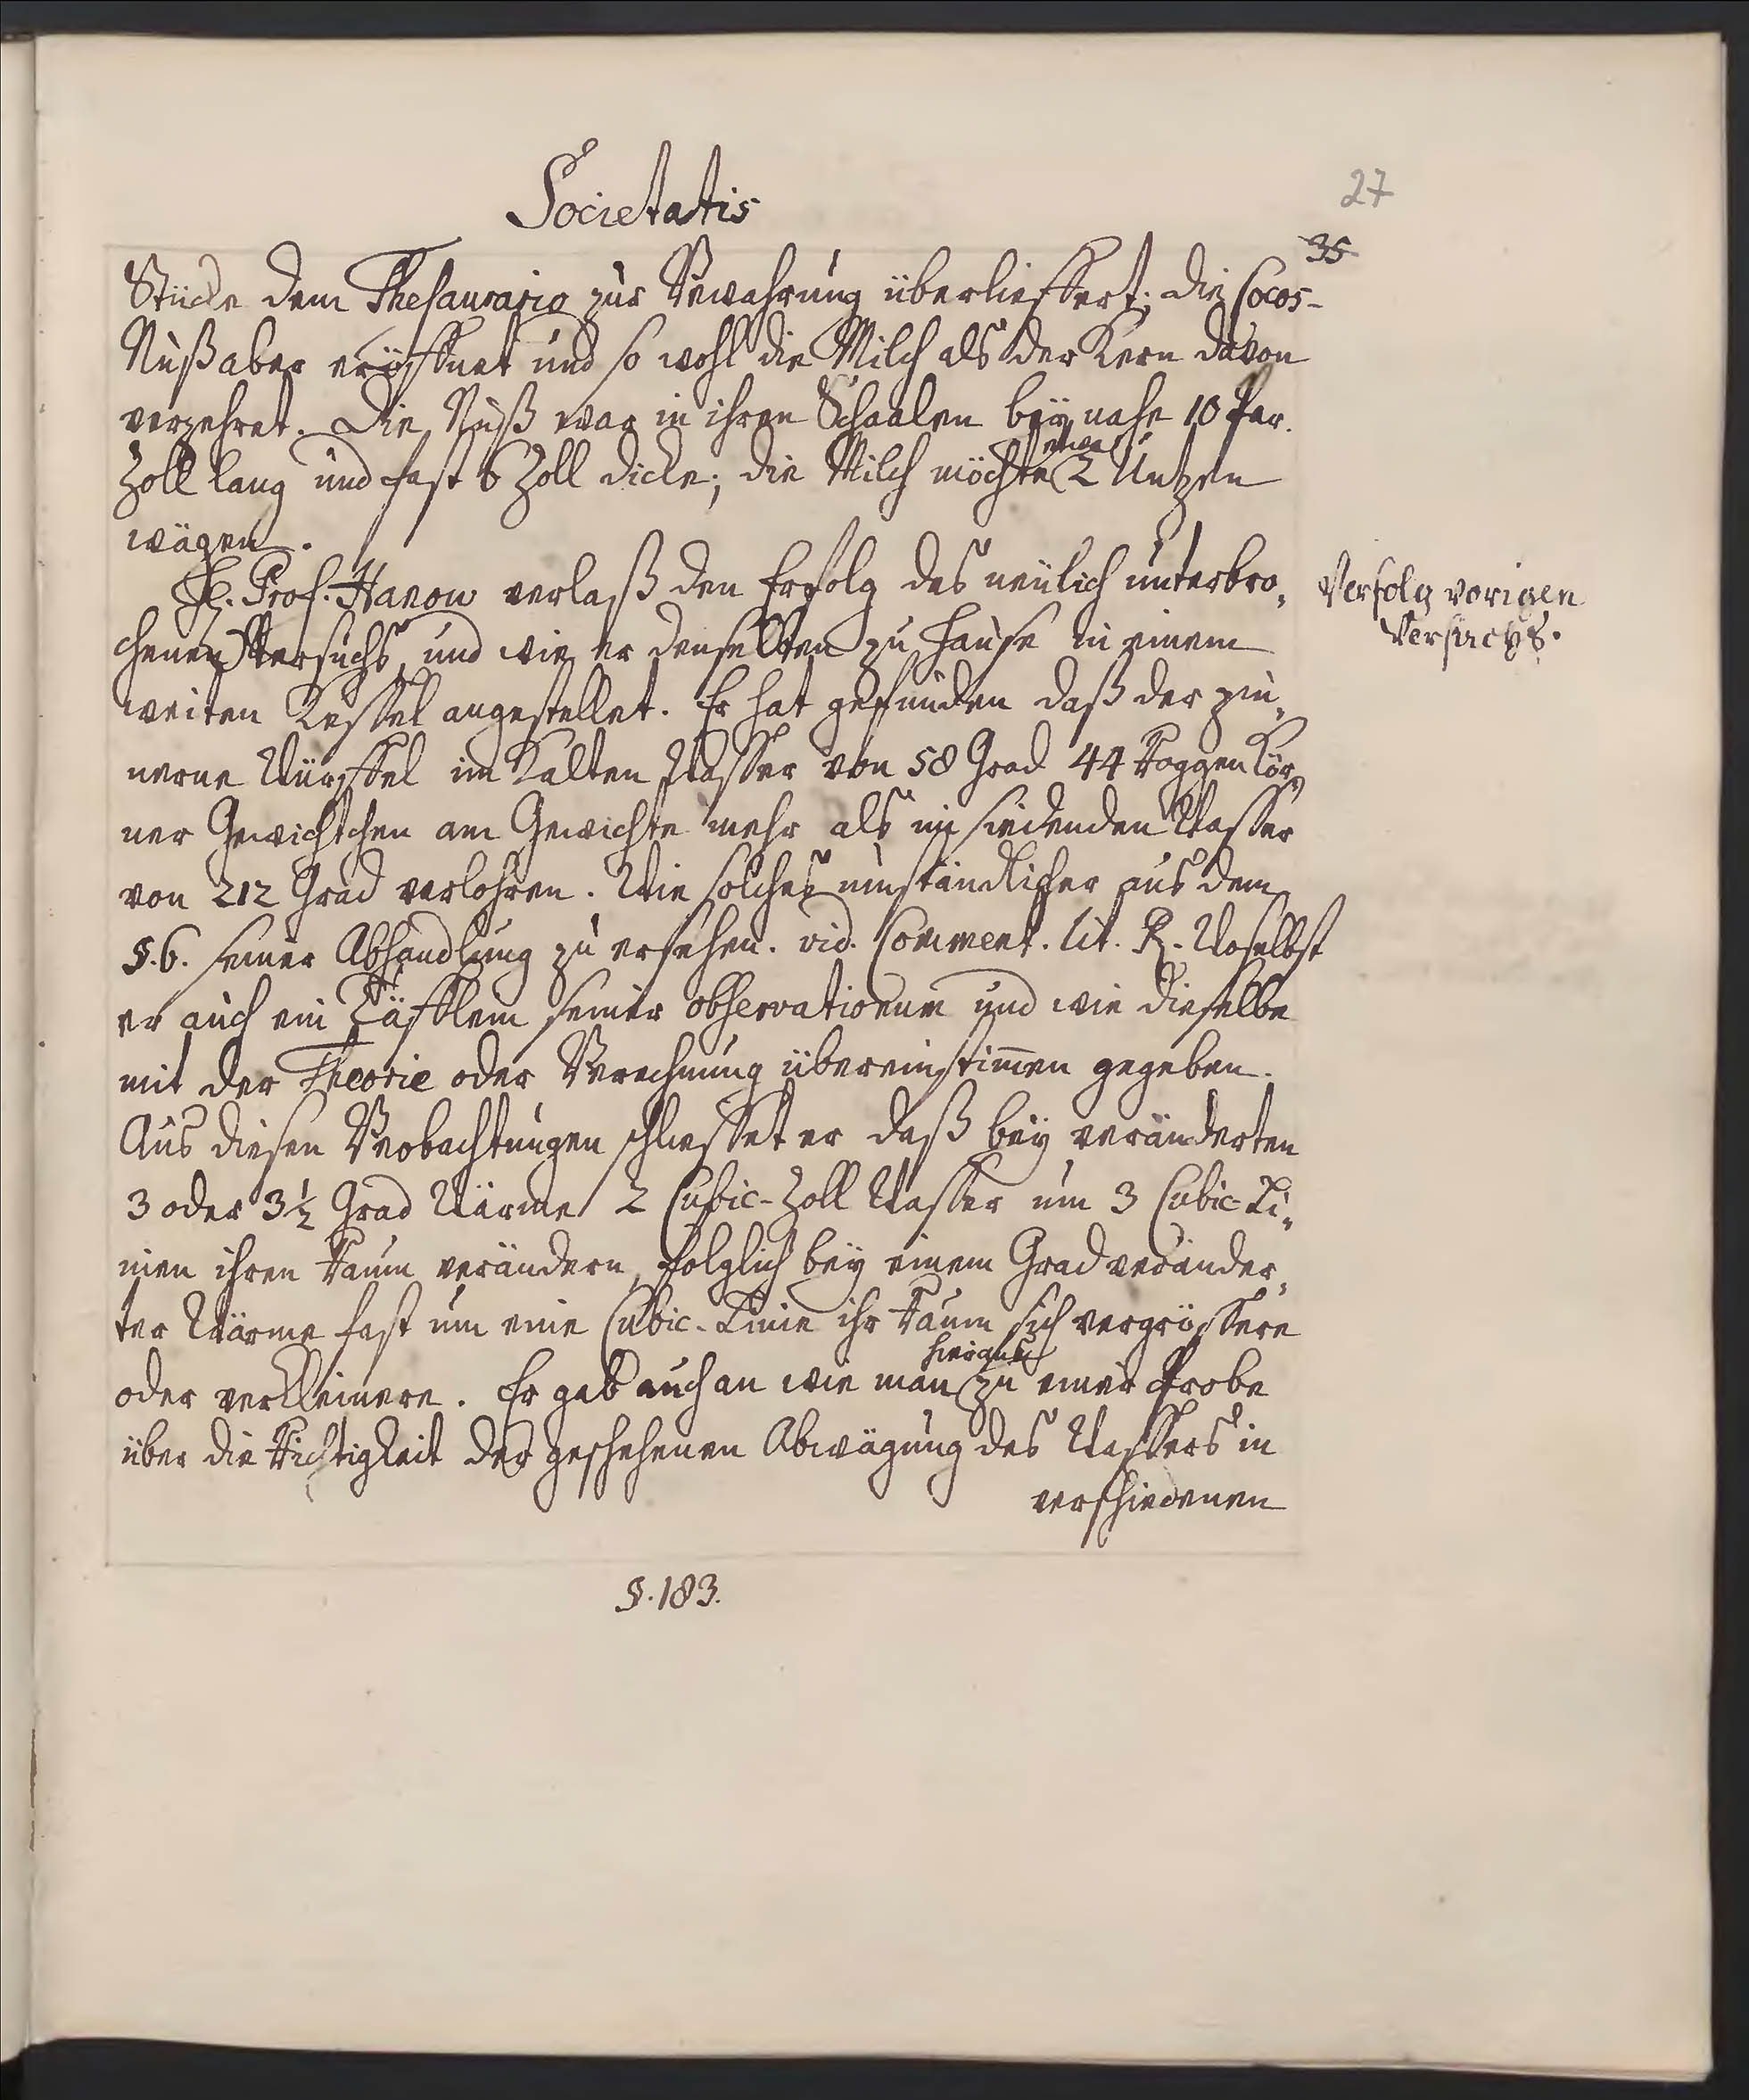 Societatis
27
35
Stücke dem Thesaurario zur Bewahrung überlieffert; die Cocos-
Nuß aber eröffnet und so wohl die Milch als der Kern davon
verzehret. Die Nuß war in ihren Schaalen bey nahe 10 Par.
Zoll lang und fast 6 Zoll dicke; die Milch möchte etwa 2 Untzen
wägen.
H. Prof. Hanow verlaß den Erfolg des neulich unterbro„
chenen Versuchs, und wie er denselben zu Hause in einem
weiten Kessel angestellet. Er hat gefunden daß der zin„
nerne Würffel im kalten Wasser von 58 Grad 44 Roggen Kör„
ner Gewichtchen am Gewichte mehr als im siedenden Wasser
von 212 Grad verlohren. Wie solches umständlicher aus dem
§.6. seiner Abhandlung zu ersehen. vid. Comment. lit. R. Woselbst
er auch ein Täfflein seiner observationum und wie dieselbe
mit der Theorie oder Berechnung übereinstim̅en gegeben.
Aus diesen Beobachtungen schliesset er daß bey veränderten
3 oder 3½ Grad Wärme 2 Cubic-Zoll Wasser um 3 Cubic-Li„
nien ihren Raum verändern, folglich bey einem Grad veränder„
ter Wärme fast um eine Cubic-Linie ihr Raum sich vergrössere
oder verkleinere. Er gab auch an wie man hieraus zu einer Probe
über die Richtigkeit der geschehenen Abwägung des Wassers in
verschiedenen
Verfolg vorigen
Versuchs.
§.183.